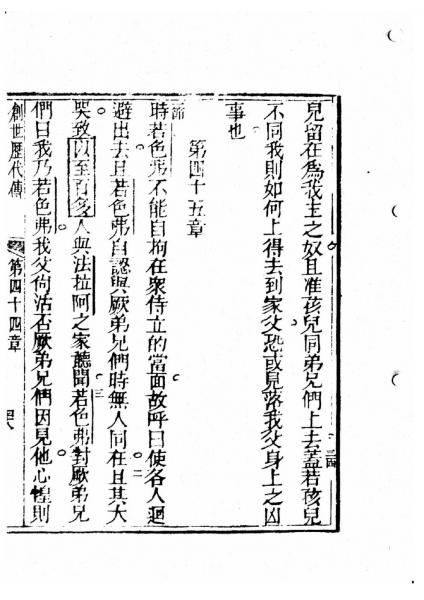 兒留在為我主之奴且准孩兒同弟兄們上去蓋若孩兒
三四
不同我則如何上得去到家父恐或見落我父身上之凶
事也
第四十五章
節
時若色弗不能自拘在衆侍立的當面故呼曰使各人迴
二
避出去且若色弗自認與厥弟兄們時無人同在且其大
三
哭致以至百多人與法拉阿之家聽聞若色弗對厥弟兄
們曰我乃若色弗我父尚活否厥弟兄們因見他心惶則
創世歷代傳
第四十四章